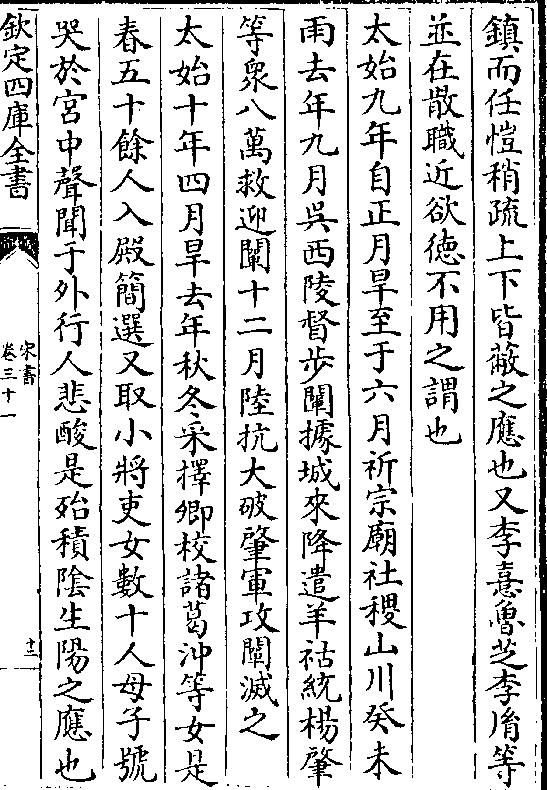 鎮而任愷稍疏上下皆蔽之應也又李憙魯芝李𦙍等
並在散職近欲徳不用之謂也
太始九年自正月旱至于六月祈宗廟社稷山川癸未
雨去年九月吳西陵督步闡據城來降遣羊祜統楊肇
等衆八萬救迎闡十二月陸抗大破肇軍攻闡滅之
太始十年四月旱去年秋冬采擇卿校諸葛沖等女是
春五十餘人入殿簡選又取小將吏女數十人母子號
哭於宮中聲聞于外行人悲酸是殆積隂生陽之應也
欽定四庫全書
宋書
卷三十一
十二